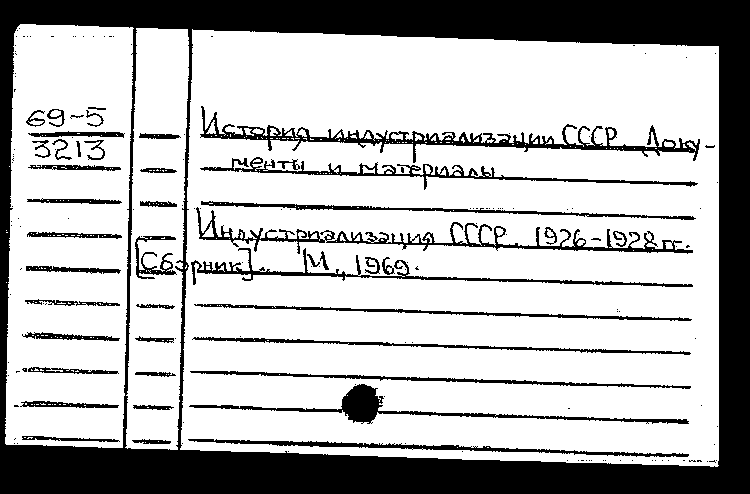 69-5
3213
История индустриализации СССР. Доку-
менты и материалы.
Индустриализация СССР. 1926-1928 гг.
[Сборник]. М., 1969.